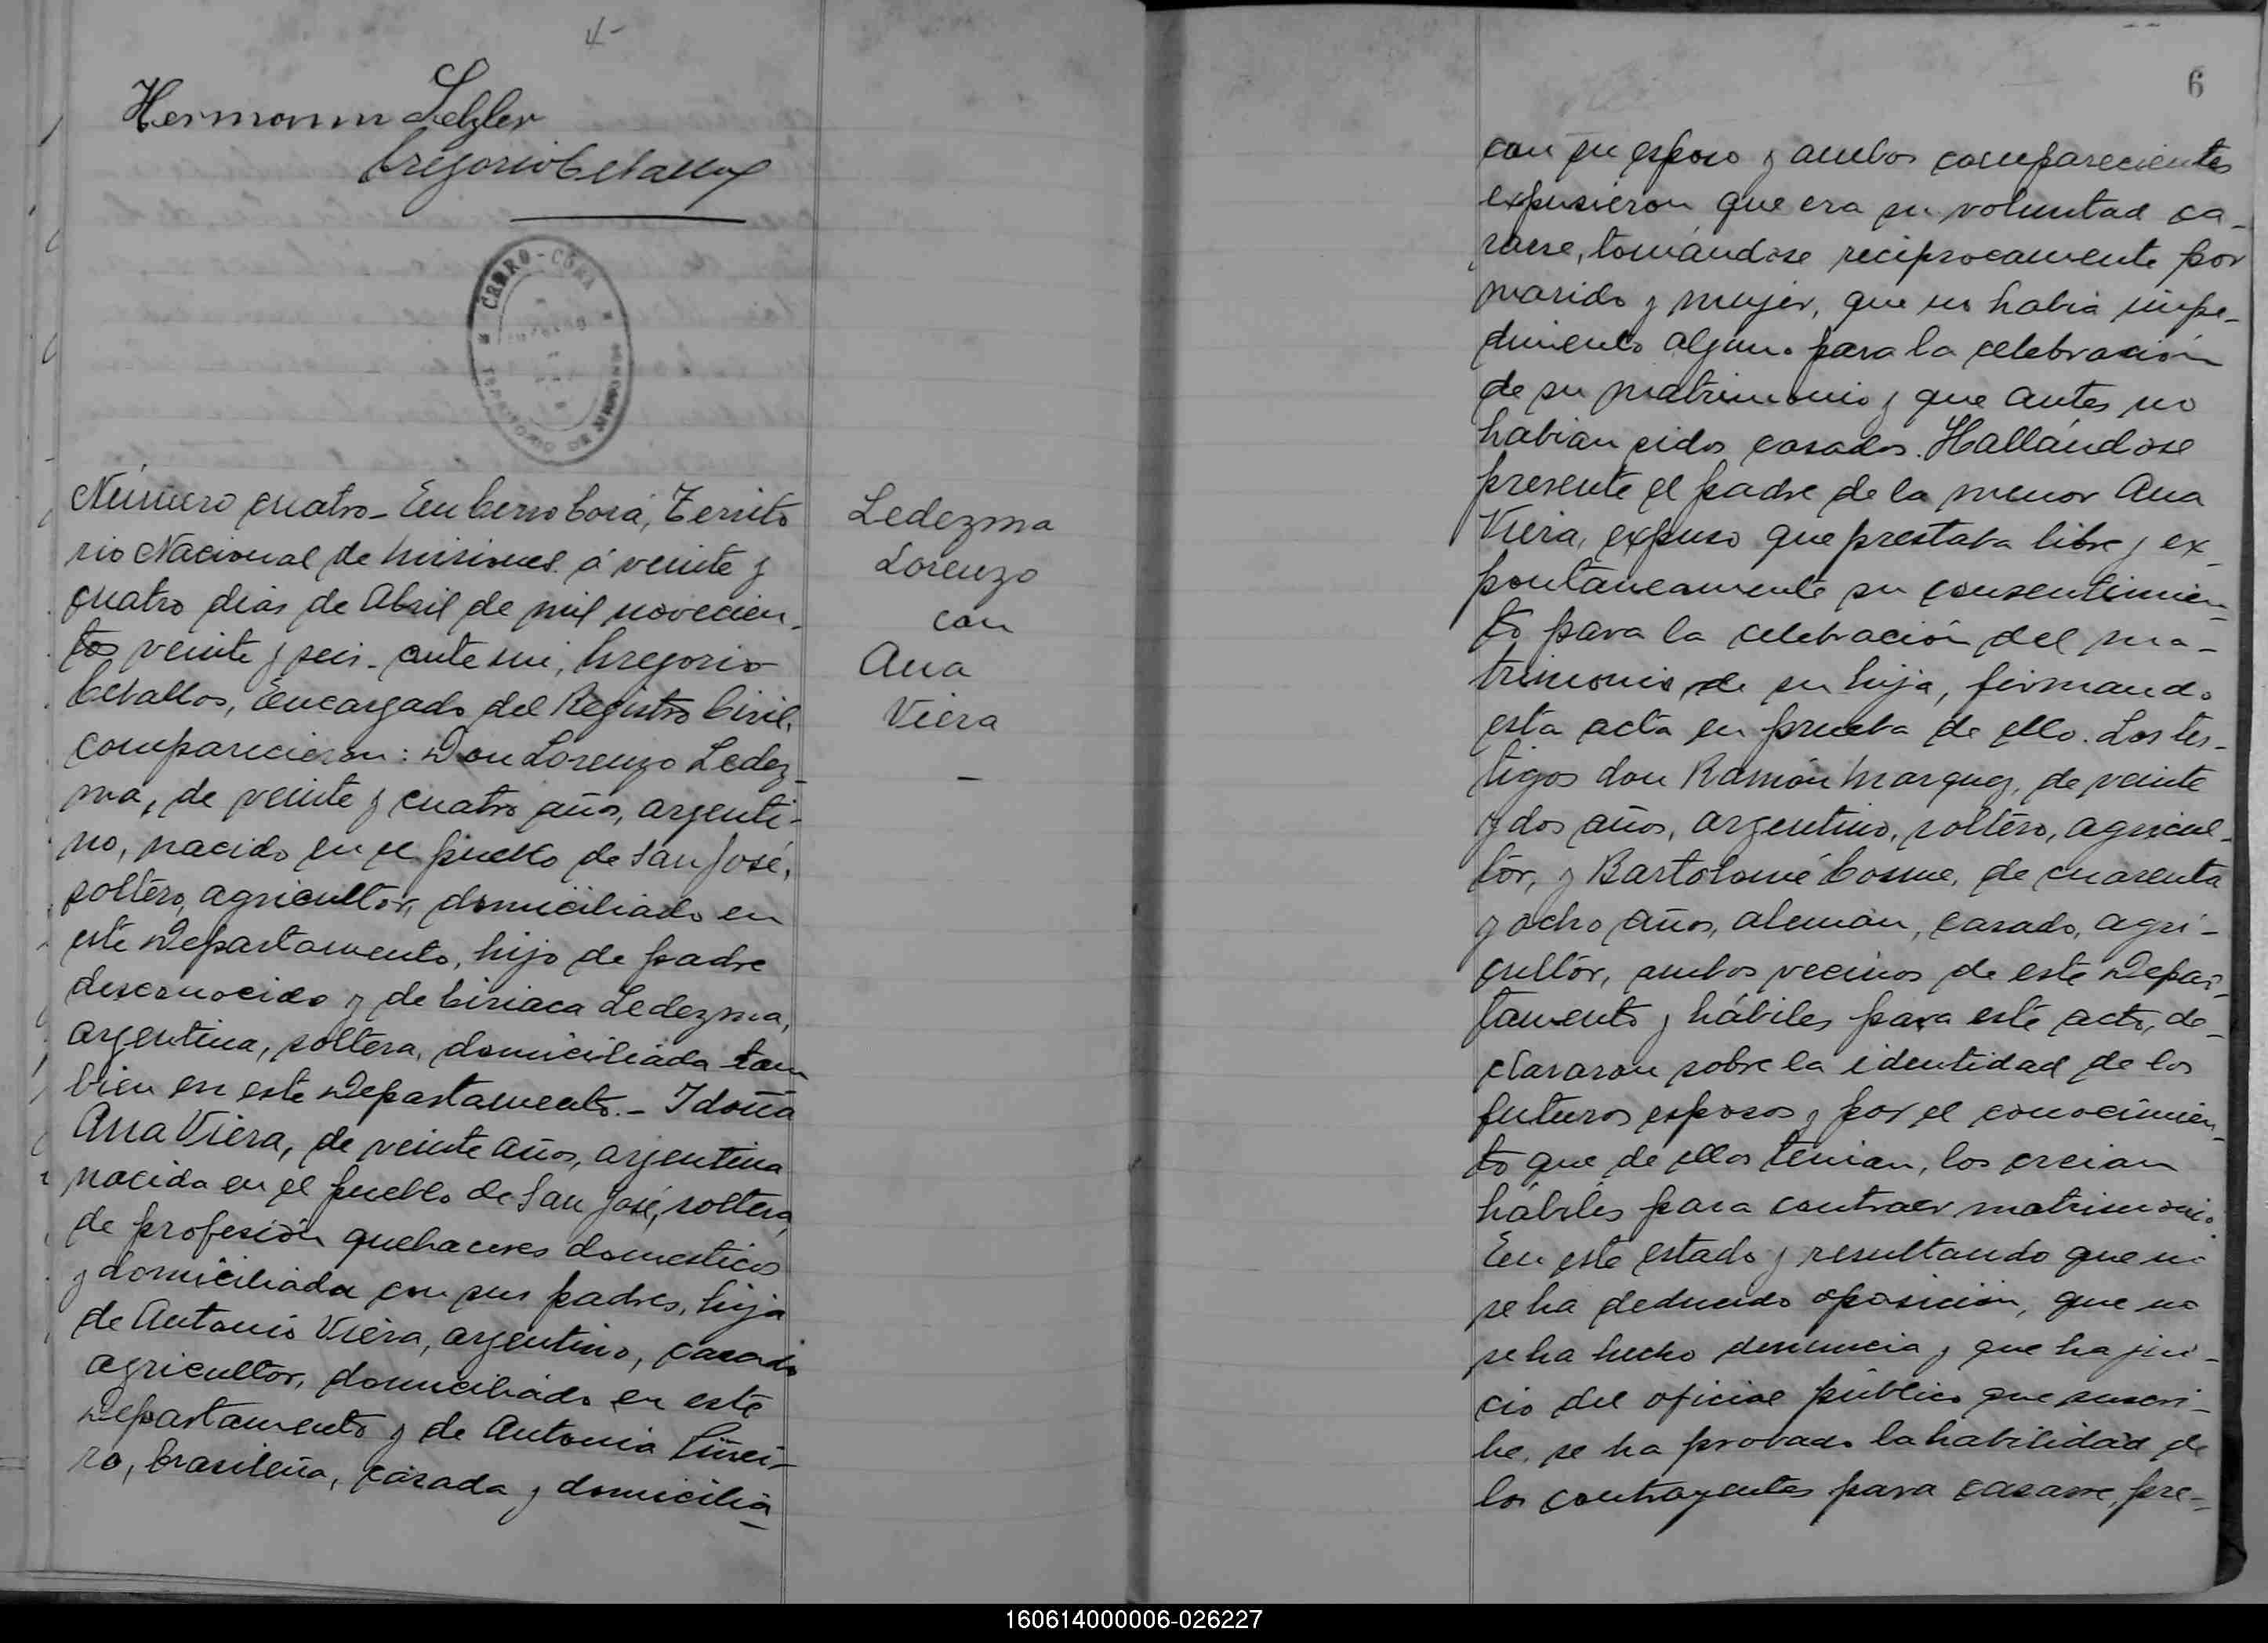 4-
Hermann Selzler
Gregorio Ceballos
CERRO-CORÁ
TERRITORIO DE MISIONES
Número cuatro - En Cerro Corá, Territo
rio Nacional de Misiones á veinte y
cuatro dias de Abril de mil novecien-
tos veinte y seis - ante mi, Gregorio
Ceballos, Encargado del Registro Civil,
comparecieron: Don Lorenzo Ledez-
ma, de veinte y cuatro años, argenti-
no, nacido en el pueblo de San José,
soltero, agricultor, domiciliado en
este Departamento, hijo de padre
desconocido y de Ciriaca Ledezma,
argentina, soltera, domiciliada tam
bien en este Departamento. - I doña
Ana Viera, de veinte años, argentina
nacida en el pueblo de San José, soltera
de profesión quehaceres domesticos
y domiciliada con sus padres, hija
de Antonio Viera, argentino, casado
agricultor, domiciliado en este
Departamento y de Antonia
ra, brasileña, casada y domicilia
Ledezma
Lorenzo
con
Ana
Viera
-
6
con su esposo y ambos comparecientes
expusieron que era su voluntad ca-
sarse, tomándose reciprocamente por
marido y mujer, que no habia impe-
dimento alguno para la celebración
de su matrimonio y que antes no
habian sidos casados. Hallándose
presente el padre de la menor Ana
Viera, expuso que prestaba libre y ex-
pontaneamente su consentimien-
to para la celebración del ma-
trimonio de su hija, firmando
esta acta en prueba de ello. Los tes-
tigos don Ramón Marquez, de veinte
y dos años, argentino, soltero, agricul-
tor, y Bartolomé Cosme, de cuarenta
y ocho años, aleman, casado, agri-
cultor, ambos vecinos de este Depar-
tamento y hábiles para este acto, de-
clararon sobre la identidad de los
futuros esposos y por el conocimien-
to que de ellos tenian, los creian
hábiles para contraer matrimonio.
En este estado y resultando que no
se ha deducido oposición, que no
se ha hecho denuncia y que ha jui-
cio del oficial público que suscri-
be, se ha probado la habilidad de
los contrayentes para casarse, pre-
160614000006-026227